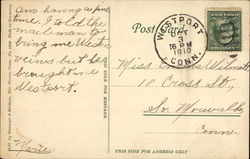 am having a fine
time. I told the
mail man to
bring me Western
views but he
brought me
Westport.
Post Card
WESTPORT
OCT
3
16 PM
1910
CONN.
Miss
Wilmott
10 Cross St.,
So. Norwalk
Conn.
THIS SIDE FOR MESSAGE
THIS SIDE FOR ADDRESS ONLY